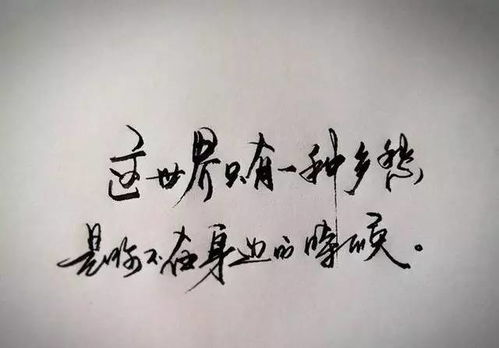 这世界只有一种乡愁
是你不在身边的时候。